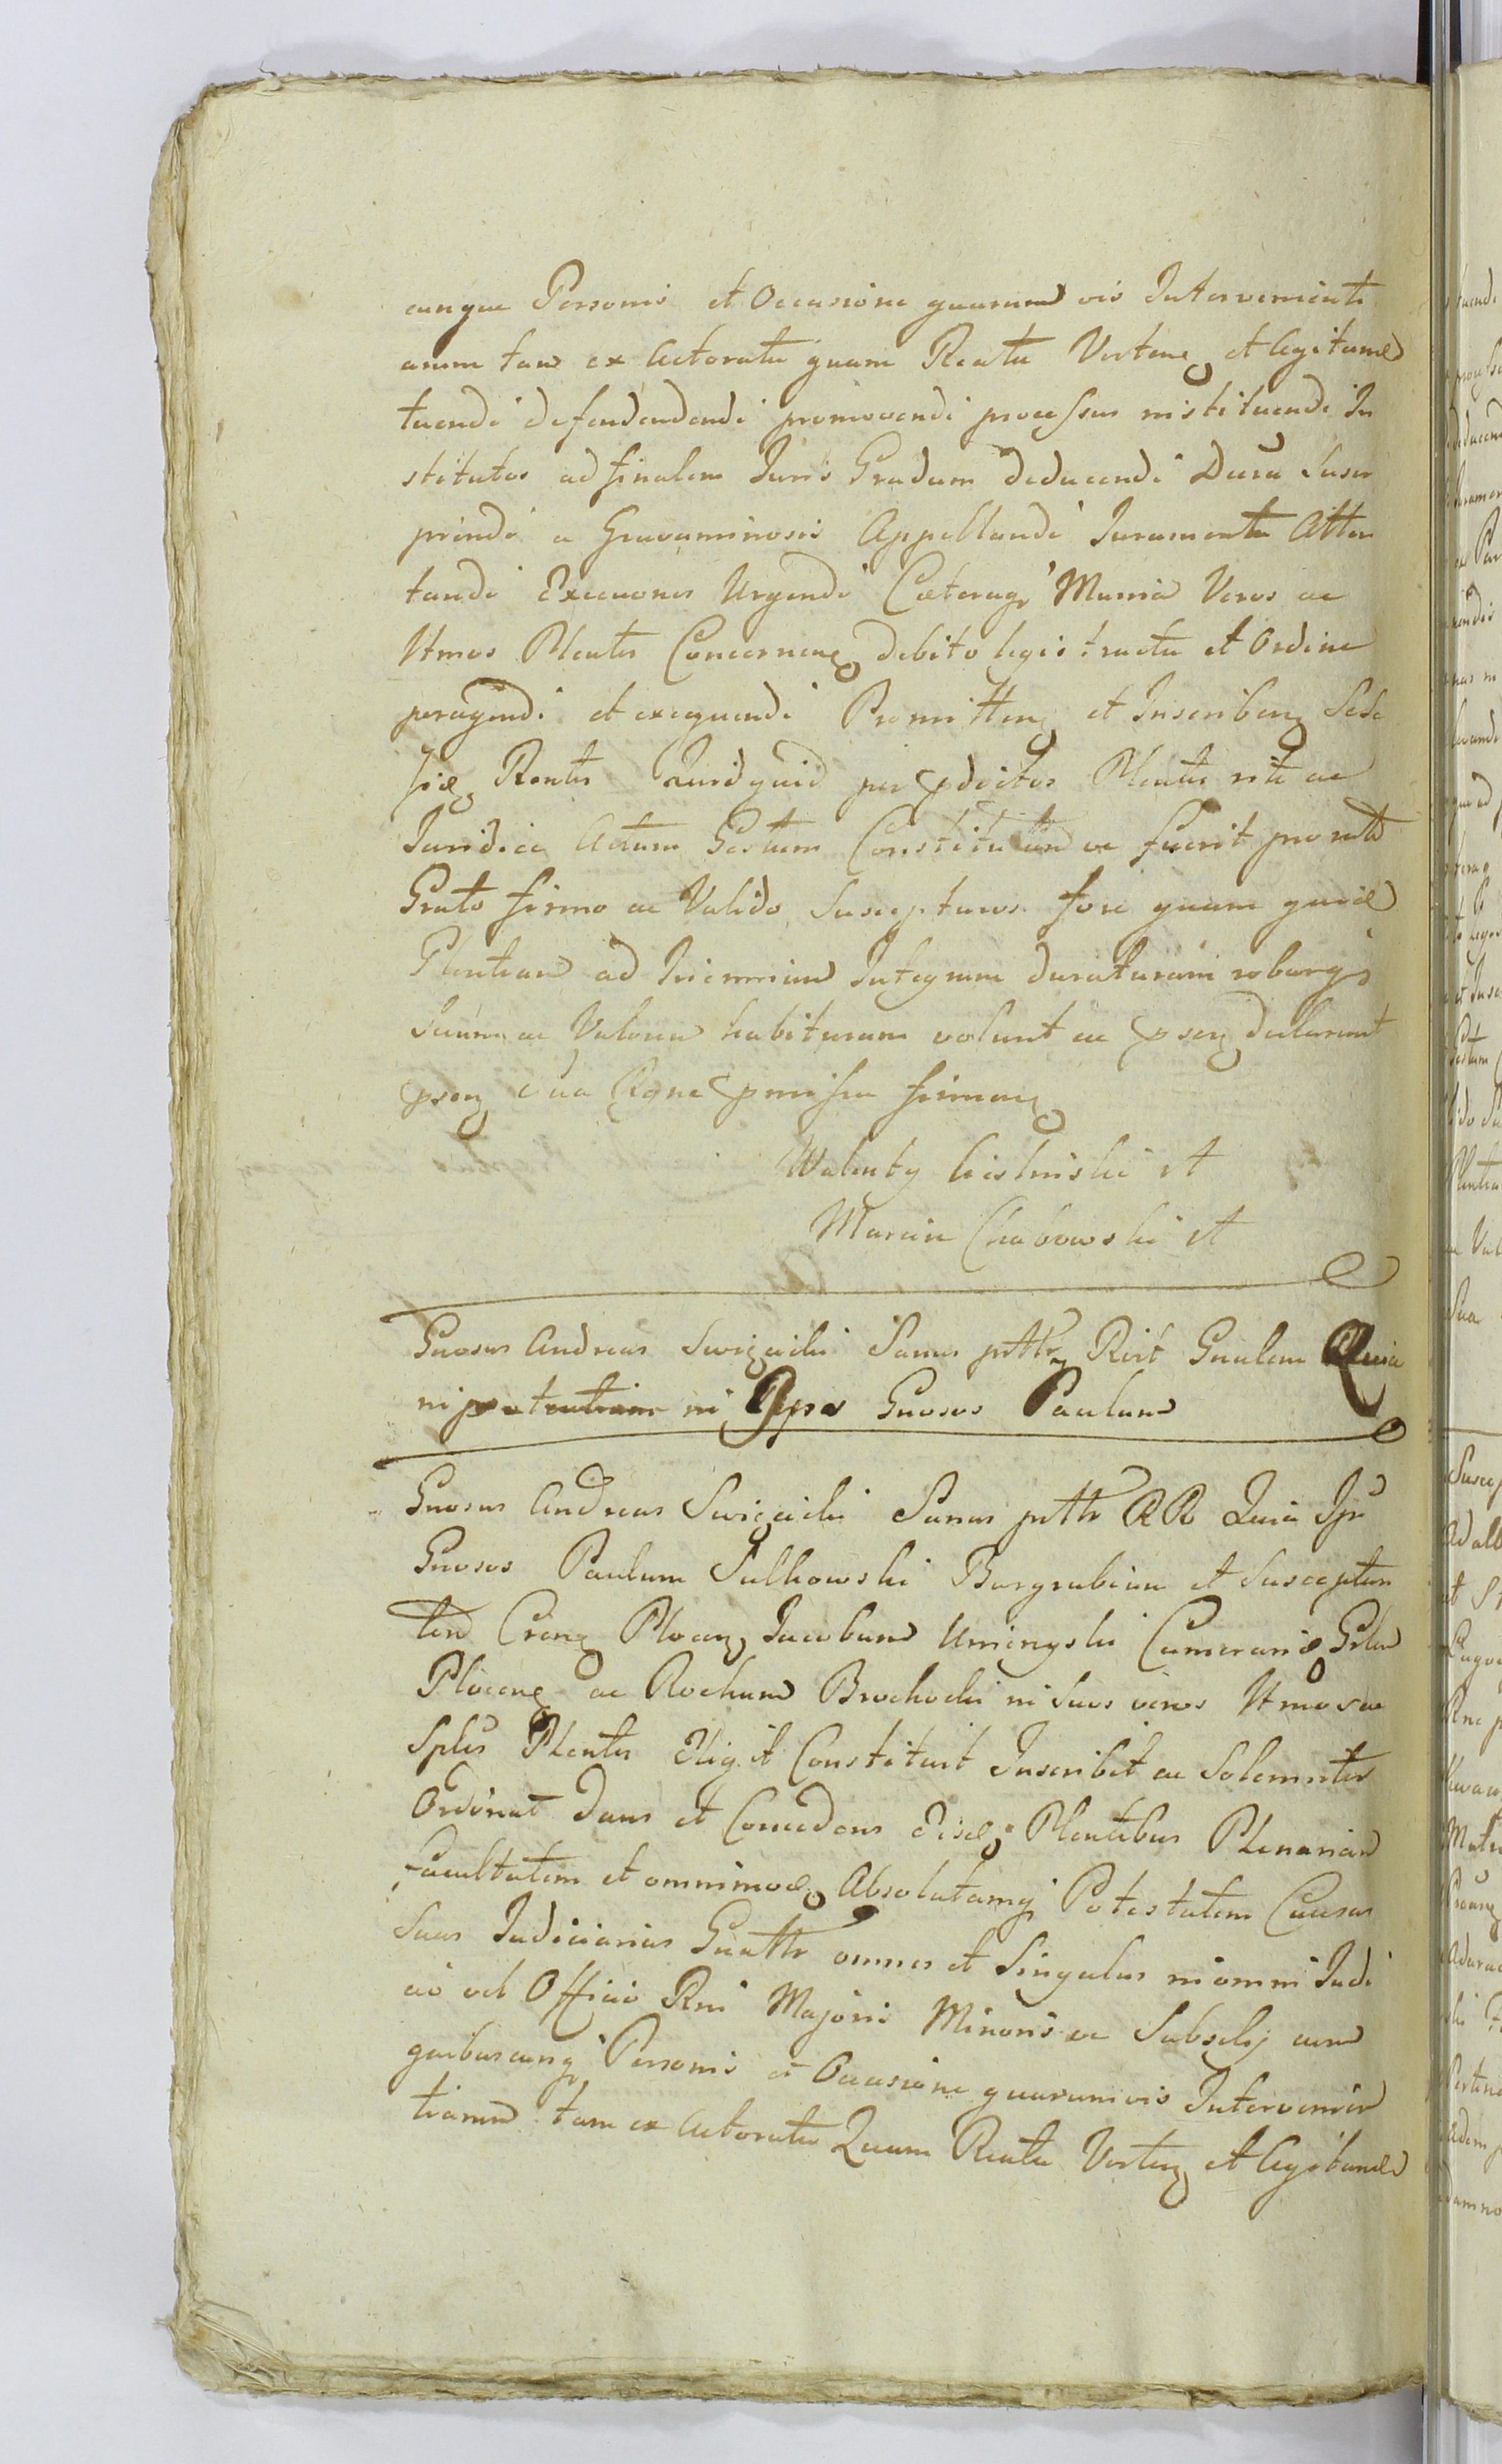 cunque Personis et Occasione quarum vis Intervenienti
arum tam ex Actoratu quam Reatu Verten et legitime
tuendi defendendendi promovendi processus instituendi In
stitutos ad finalem Juris Gradum deducendi Dura Susci
piendi a Gravaminosis Appellandi Juramenta Atten
tandi Execuones Urgendi Caeteraq Munia Veros ac
Ltmos Plentes Concernen debito legis tractu et Ordine
peragendi et exequendi Promitten et Inscriben Sese
Rentes Quidquid per pdictos Plentes rite ac
Juridice Actum Gestum Constitutum ve fuerit pro rato
Grato firmo ac Valido Suscepturos fore quam quid
Plentiam ad Triennium Integrum duraturam roburq
Suum ac Valorem habituram volunt ac psen declarant
psen sua Rgne pmissa firman
Walenty et
Marcin Chabowski et
Gnosus Andreas Swięcicki Sanus ptthr Rect Gnalem Quia
in potentiam in Ipse Gnosos Paulum
Gnosus Andreas Swięcicki Sanus ptthr RR Quia Ipse
Gnosos Paulum Sulkowski Burgrabium et Susceptan
tem Cren Plocen Jacobum Umienyski Camerarium Grlem
Plocens ac Rochum Brochocki in suos veros Ltmos ac
Sples Plentes Eligit Constituit Inscribit ac Solemniter
Ordinat Dans et Concedens Eisd Plentibus Plenariam
facultatem et omnimod Absolutamq Potestatem Causas
suas Judiciarias Gnatthr omnes et Singulas in omni Judi
cio vel Officio Rni Majoris Minoris ve Subselij cum
quibuscunq Personis et Occasione quarumvis Intervenien
tiarum tam ex Actoratu Quam Reatu Verten et legitime